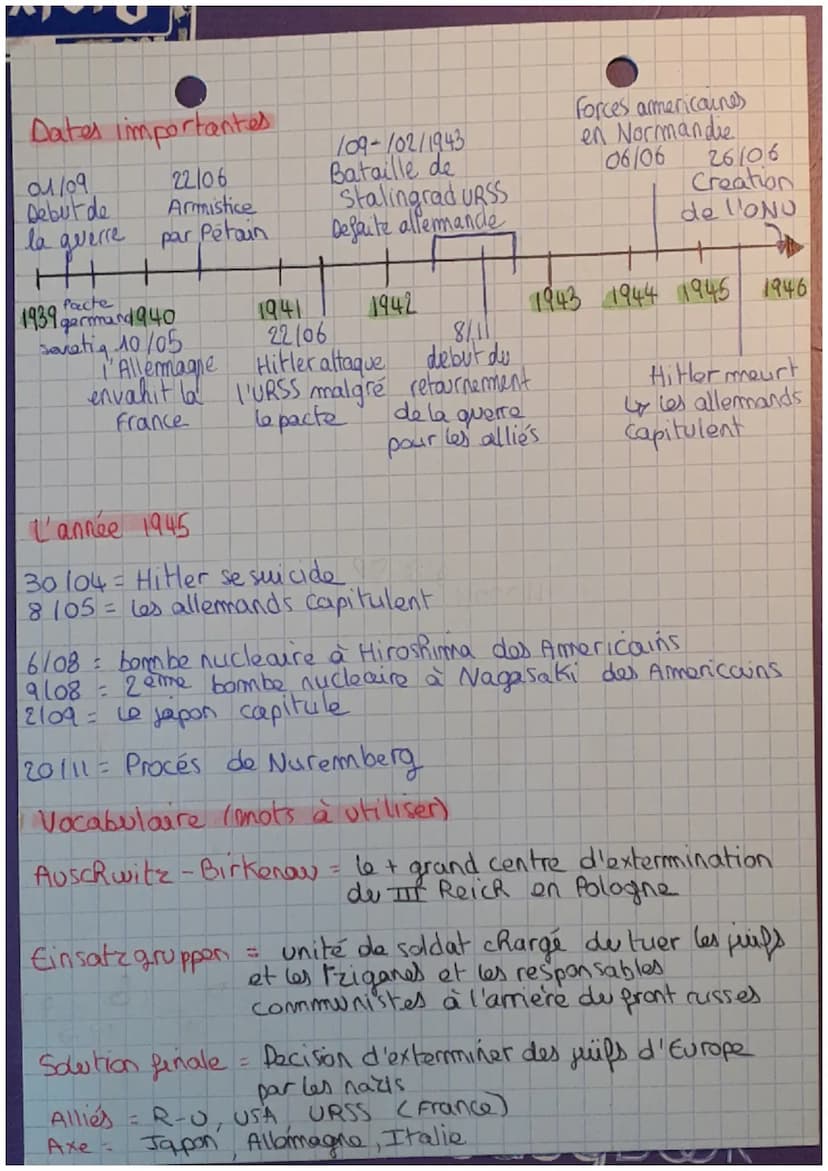 Dates importantes
01/09
Debut de
la guerre
22/06
Armistice
par Pétain
/09-/02/1943
Bataille de
Stalingrad URSS
Defaite allemande
Forces americaines
en Normandie
06/06
26/06
Creation
de l'ONU
1939
Pacte
germano
sovetiq
1940
10/05
l'Allemagne
envahit la
France
1941
22/06
Hitler attaque
l'URSS malgré
le pacte
1942
8/11
debut du
retournement
de la guerre
pour les alliés
1943 1944 1945 1946
Hitler meurt
↳ les allemands
capitulent
L'année 1945
30/04 = Hitler se suicide
8/05 = les allemands capitulent
6/08 = bombe nucleaire à Hiroshima des Americains
9/08 = 2ème bombe nucleaire à Nagasaki des Americains
2/09 = le japon capitule
20/11 = Procés de Nuremberg
Vocabulaire (mots à utiliser)
Auschwitz-Birkenau = le + grand centre d'extermination
du IIIe Reich en Pologne
Einsatzgruppen = unité de soldat chargé de tuer les juifs
et les Tziganes et les responsables
communistes à l'arrière du front russes
Solution finale = Decision d'exterminer des juifs d'Europe
par les nazis
Alliés = R-U, USA, URSS (France)
Axe = Japon, Allemagne, Italie